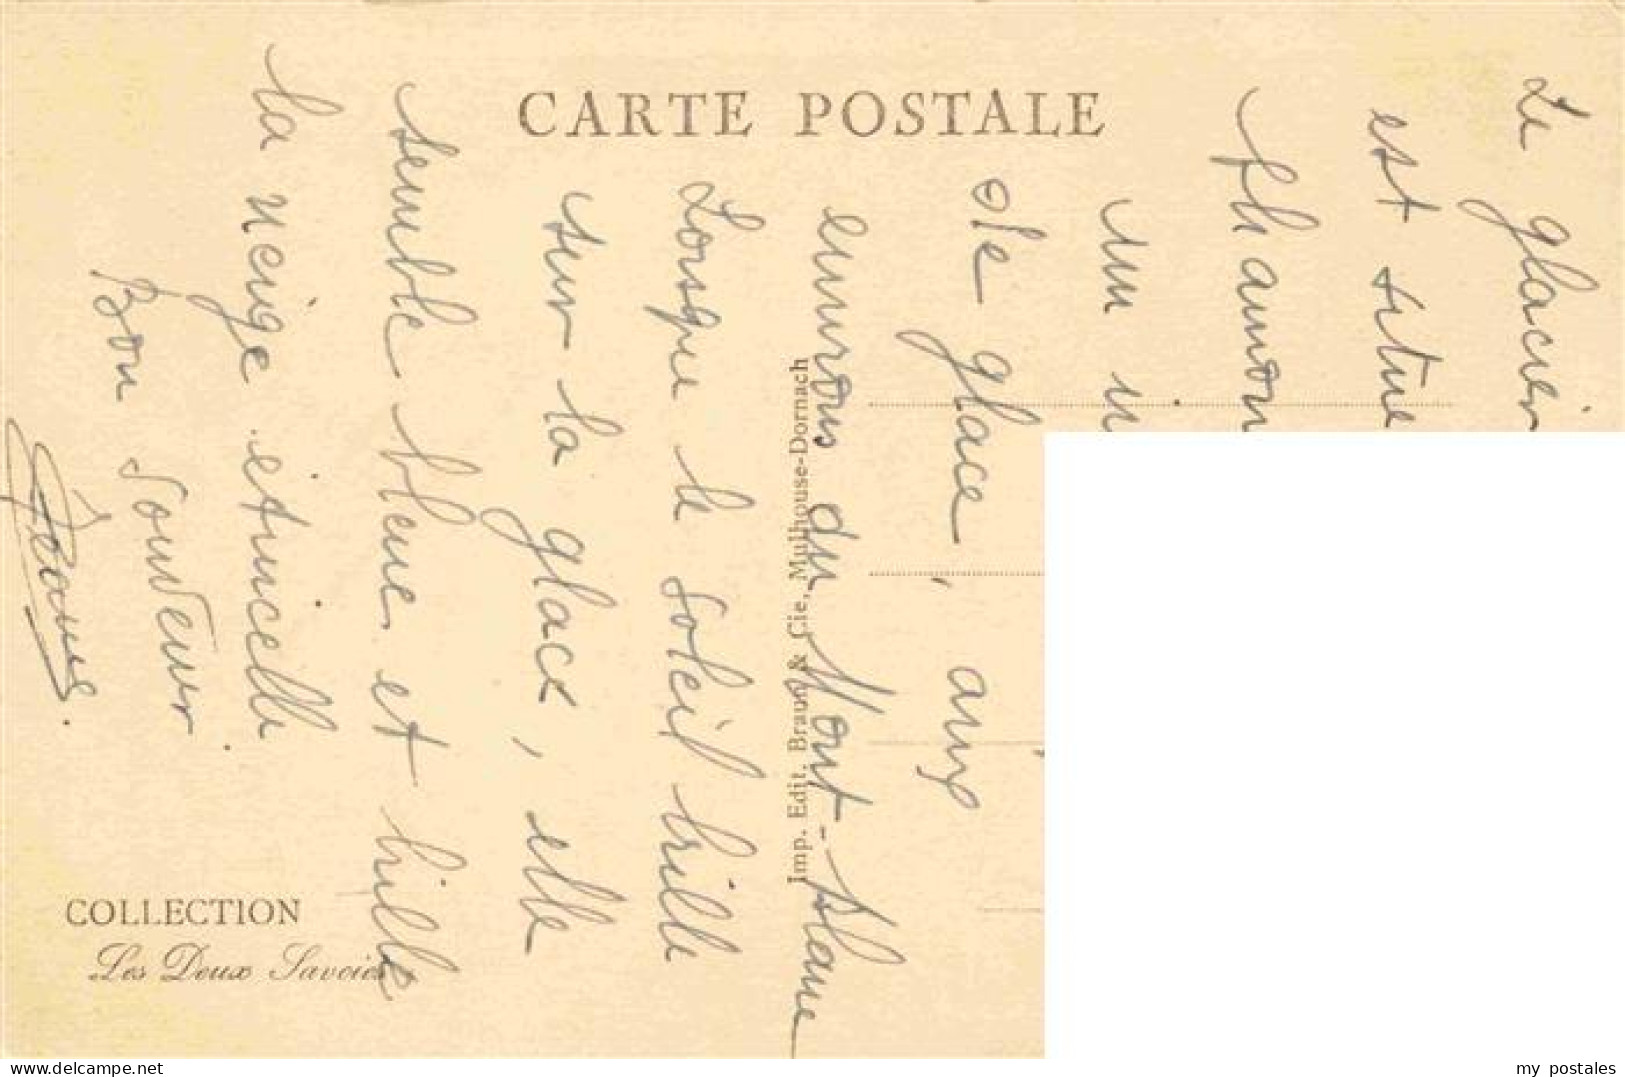 CARTE POSTALE
Le glacier
est situe
un
de glace, aux
environs du Mont-Blanc
Lorsque le soleil brille
sur la glace, elle
semble bleue et brille
la neige etincelle
Bon Souvenir.
Jeanne.
Imp. Edit. Braun & Cie, Mulhouse-Dornach
COLLECTION
Les Deux Savoies
delcampe.net
my postales